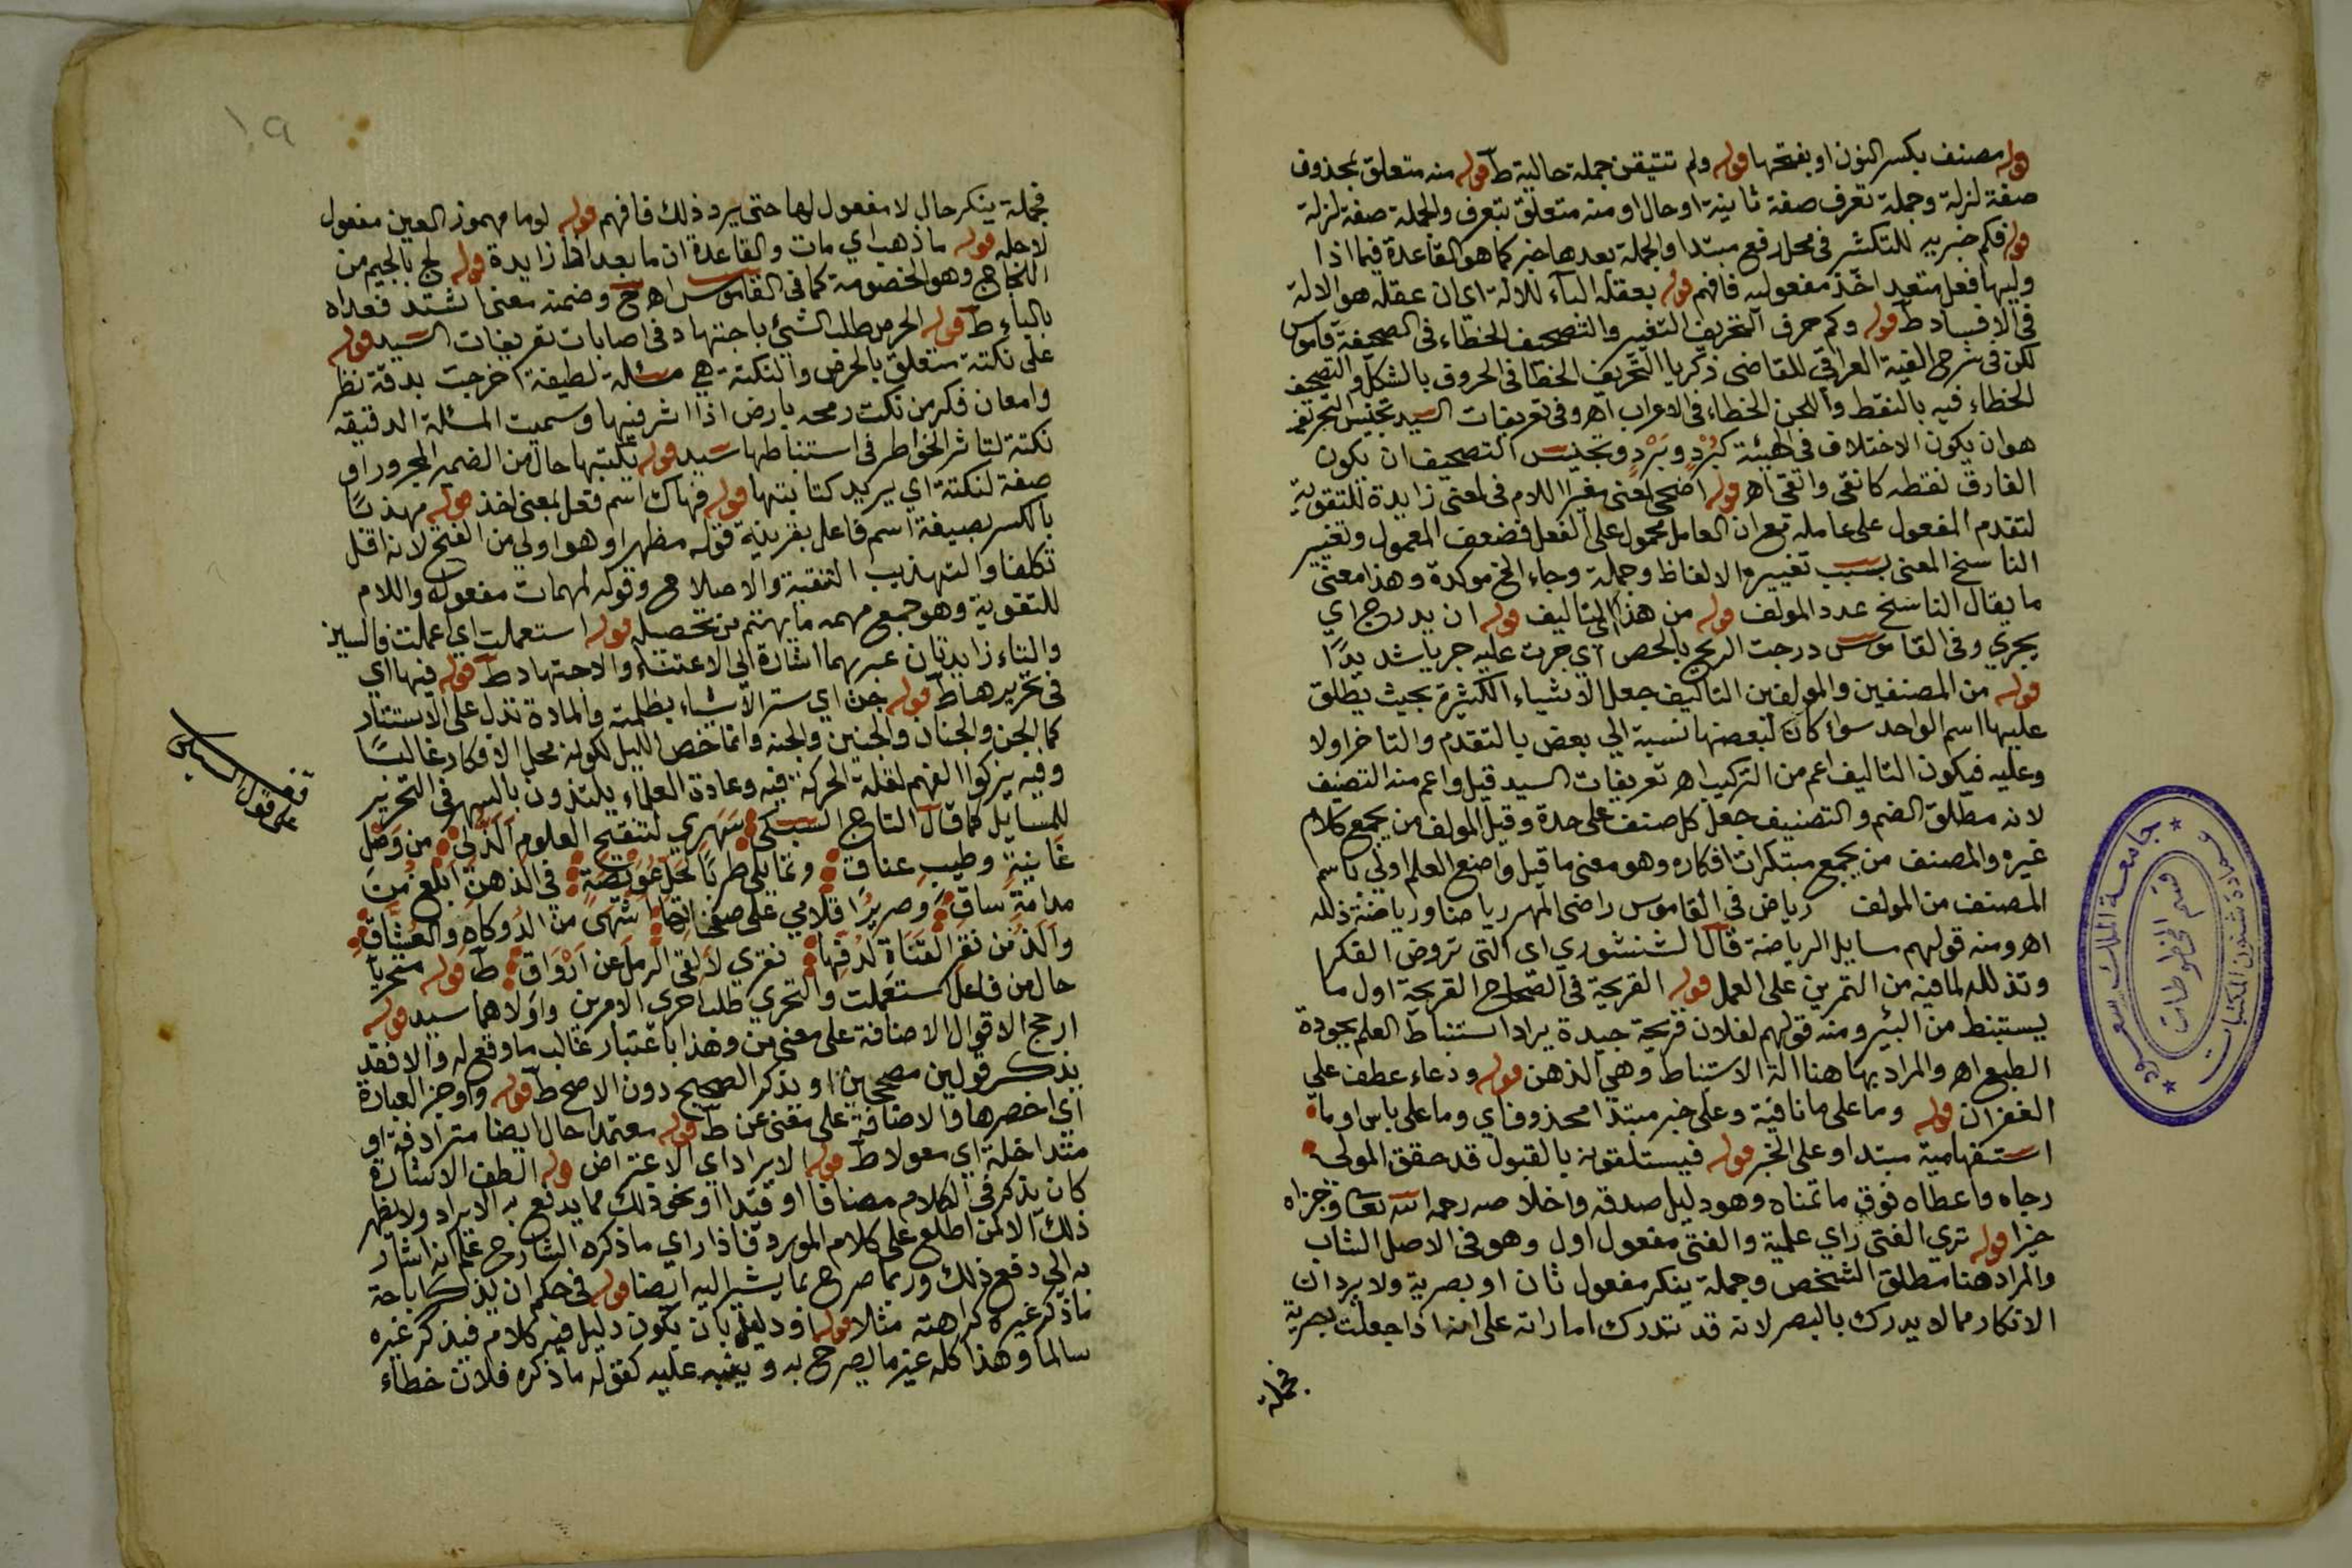 قوله مصنف بكسر النون او بفتحها قوله ولم تتيقن جملة حالية ط قوله منه متعلق بمحذوف
صفة لزلة وجملة تعرف صفة ثانية او حال او منه متعلق بتعرف والجملة صفة لزلة
قوله فكم خبريه للتكثير في محل رفع مبتدا والجملة بعدها خبر كما هو القاعدة فيما اذا
وليها فعل متعد اخذ مفعوله فافهم قوله بعقله الباء للالة اي ان عقله هو الالة
في الافساد ط قوله وكم حرف التحريف التغيير والتصحيف الخطاء في الصحيفة قاموس
لكن في شرح الفية العراقي للقاضي زكريا التحريف الخطا في الحروف بالشكل والتصحيف
الخطاء فيه بالنقط واللحن الخطاء في الاعراب اهـ وفي تعريفات السيد تجنيس التحريف
هو ان يكون الاختلاف في الهيئة كبُرْدٍ وبَرْدٍ وتجنيس التصحيف ان يكون
الفارق نقطه كانقى واتقى اهـ قوله اضحى لمعنى مغيرا اللام في لمعنى زايدة للتقوية
لتقدم المفعول على عامله مع ان العامل محمول على الفعل فضعف المعمول وتغيير
الناسخ المعنى بسبب تغييره الالفاظ وجملة وجاء الخ موكدة وهذا معنى
ما يقال الناسخ عدد المولف قوله من هذا التاليف قوله ان يدرج اي
يجري وفي القاموس درجت الريح بالحصى اي جرت عليه جريا شديدًا
قوله من المصنفين والمولفين التاليف جعل الاشياء الكثيرة بحيث يطلق
عليها اسم الواحد سواء كان لبعضها نسبة الي بعض بالتقدم والتاخر اولا
وعليه فيكون التاليف اعم من التركيب اهـ تعريفات السيد قيل واعم منه التصنيف
لانه مطلق الضم والتصنيف جعل كل صنف على حدة وقيل المولف من يجمع كلام
غيره والمصنف من يجمع مبتكرات افكاره وهو معنى ما قيل واضع العلم اولي باسم
المصنف من المولف رياض في القاموس راض المهر رياضا ورياضة ذلله
اهـ ومنه قولهم مسايل الرياضة قال الشنشوري اي التي تروض الفكر
وتذلله لما فيه من التمرين على العمل قوله القريحة في الصحاح القريحة اول ما
يستنبط من البئر ومنه قولهم لفلان قريحة جيدة يراد استنباط العلم بجودة
الطبع اهـ والمراد بها هنا الة الاستنباط وهي الذهن قوله ودعاء عطف علي
الغفران قوله وما على ما نافية وعلى خبر مبتدا محذوف اي وما على باس او ما
استفهامية مبتدا وعلى الخبر قوله فيستلقونه بالقبول قد حقق المولى
رجاه واعطاه فوق ما تمناه وهو دليل صدقه واخلاصه رحمه الله تعا وجزاه
خيرا قوله تري الفتى راي علمية والفتى مفعول اول وهو في الاصل الشاب
والمراد هنا مطلق الشخص وجملة ينكر مفعول ثان او بصرية ولا يرد ان
الانكار مما لا يدرك بالبصر لانه قد تدرك اماراته على انها اذا جعلت بصرية
فجملة
جامعة الملك سعود
قسم المخطوطات
وعمادة شئون المكتبات
١٩
فجملة ينكر حال لا مفعول لها حتى يرد ذلك فافهم قوله لوما مهموز العين مفعول
لاجله قوله ما ذهب اي مات والقاعدة ان ما بعد اذا زايدة قوله لج بالجيم من
اللجاج وهو الخصومة كما في القاموس اهـ ح وضمنه معنى اشتد فعداه
بالباء ط قوله الحرص طلب الشئ باجتهاد في اصابات تعريفات السيد قوله
على نكتة متعلق بالحرص والنكتة هي مسئلة لطيفة اخرجت بدقة نظر
وامعان فكر من نكت رمحه بارض اذا اثر فيها وسميت المسئلة الدقيقه
نكتة لتاثر الخواطر في استنباطها سيد قوله يكتبها حال من الضمير المجرور او
صفة لنكتة اي يريد كتابتها قوله فهاك اسم فعل بمعنى خذ قوله مهذبًا
بالكسر بصيغة اسم فاعل بقرينة قوله مظهرا وهو اولي من الفتح لانه اقل
تكلفا والتهذيب التنقية والاصلاح وقوله لمهمات مفعوله واللام
للتقوية وهو جمع مهمه ما يهتم من تحصيله قوله استعملت اي اعملت فالسين
والتاء زايدتان عبر بهما اشارة الي الاعتناء والاجتهاد ط قوله فيها اي
في تحريرها ط قوله جن اي ستر الاشياء بظلمته والمادة تدل على الاستتار
كالجن والجنان والجنين والجنه وانما خص الليل لكونه محل الافكار غالبًا
وفيه يزكوا الفهم لقلة الحركة فيه وعادة العلماء يلتذون بالسهر في التحرير
للمسايل كما قال التاج السبكي سَهَري لتنقيح العلوم ألذ لي من وَصْل
غانيةٍ وطيبِ عناق وتمايلي طربًا لحل عويصة في الذهن ابلغ من
مدامة ساق وصرير اقلامي على صفحاتها اشهى من الدوكاه والعشاق
والذ من نقر الفتاة لدفها نقري لالقي الرمل عن اوراق ط قوله متحريًا
حال من فاعل استعملت والتحري طلب احرى الامرين واولاهما سيد قوله
ارجح الاقوال الاضافة على معنى من وهذا باعتبار غالب ما وقع له والا فقد
يذكر قولين مصححين او يذكر الصحيح دون الاصح ط قوله واوجز العبارة
اي اخصرها والاضافة على معنى عن ط قوله معتمدا حال ايضا مترادفة او
متداخلة اي معولا ط قوله الايراد اي الاعتراض قوله الطف الاشارة
كان يذكر في الكلام مضافا او قيدا او نحو ذلك مما يدفع به الايراد ولا يظهر
ذلك الا لمن اطلع على كلام المورد فاذا راي ما ذكره الشارح علم انه اشار
به الي دفع ذلك وربما صرح بما يشير اليه ايضا قوله في حكم ان يذكر اباحة
ما ذكر غيره كراهته مثلا قوله او دليل بان يكون دليل فيه كلام فيذكر غيره
سالما وهذا كله غير ما يصرح به وينبه عليه كقوله ما ذكره فلان خطاء
قف
على قول السبكي